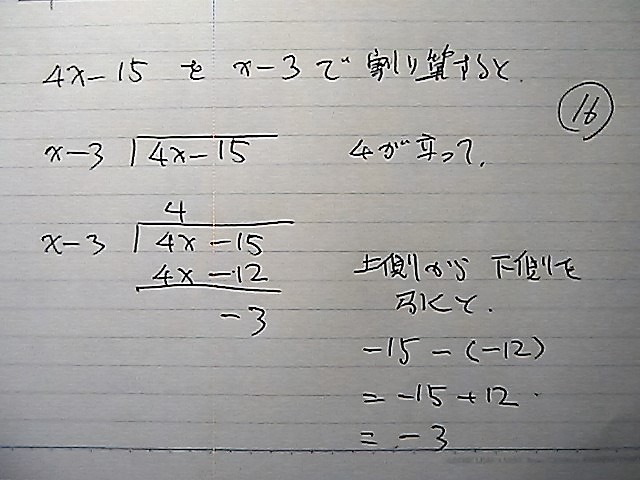 4x-15 を x-3 で 割り算すると.
16
x-3 4x-15 4が立って.
4
x-3 4x-15
4x-12
-3
上側から下側を
引くと.
-15-(-12)
= -15+12
= -3